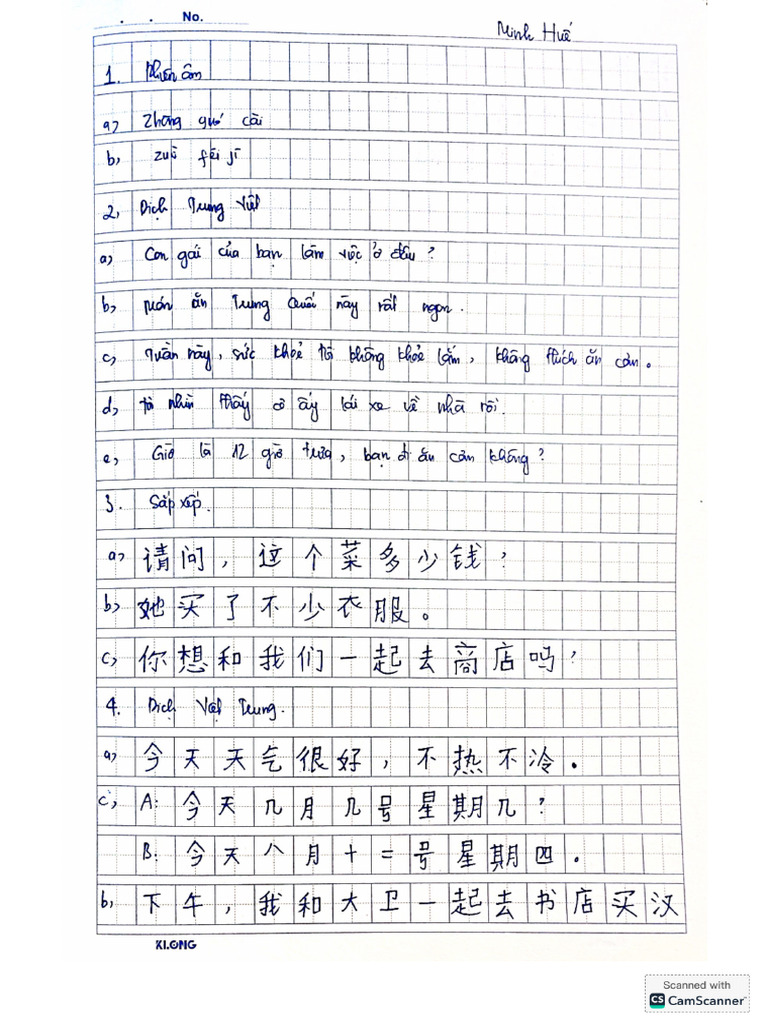 No.
Minh Huế
1. Phiên âm
a) Zhōng guó cài
b) zuò fēi jī
2. Dịch Trung Việt
a) Con gái của bạn làm việc ở đâu?
b) món ăn Trung Quốc này rất ngon.
c) Tuần này, sức khoẻ tôi không khoẻ lắm, không thích ăn cơm.
d) tôi nhìn thấy cô ấy lái xe về nhà rồi.
e) Giờ là 12 giờ trưa, bạn đi ăn cơm không?
3. Sắp xếp.
a) 请问，这个菜多少钱？
b) 她买了不少衣服。
c) 你想和我们一起去商店吗？
4. Dịch Việt Trung.
a) 今天天气很好，不热不冷.
c) A: 今天几月几号星期几?
B: 今天八月十二号星期四.
b) 下午，我和大卫一起去书店买汉
KLONG
Scanned with
CS CamScanner